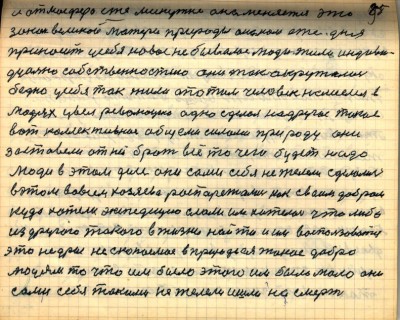 и атмосферо стя минутно она меняется это 95
закон великой матери природы она нам еже дня
приносит у себя новое не бывалое люди жили индиви-
дуално собственостью они так закрутилис
бедно у себя так жили а потом человек на шелся в
людях цвел революцию одно сделал на другое такое
вот колективное общеми силами природу они
заставели от ней брат всё то чего будет надо
люди в этом деле они сами себя не жалели сделалис
в этом во всем хозяева роспоряжались как своим добром
куда хотели экспедицию слали им хателос что либо
из другого такого в жизни найти и им восползоватся
это недры не ископаемое в природе такое добро
людям то что им было этого им было мало они
сами себя такими не жалели ишли на смерт